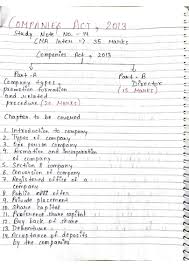 COMPANIES ACT, 2013
Study Note No. - 14
CMA Inter => 35 Marks
Companies Act, 2013
Part - A Part - B
Company types, Director
promotion formation (15 Marks)
and related
procedure (20 Marks)
Chapter to be covered
1. Introduction to company
2. Types of company
3. One person company
4. Promotion and incorporation
of company
5. Section 8 company
6. Conversion of company
7. Registered office of a
company
8. Public offer
9. Private placement
10. Share capital
11. Preference share capital
12. Buy back of share
13. Debenture
14. Acceptance of deposits
by the companies